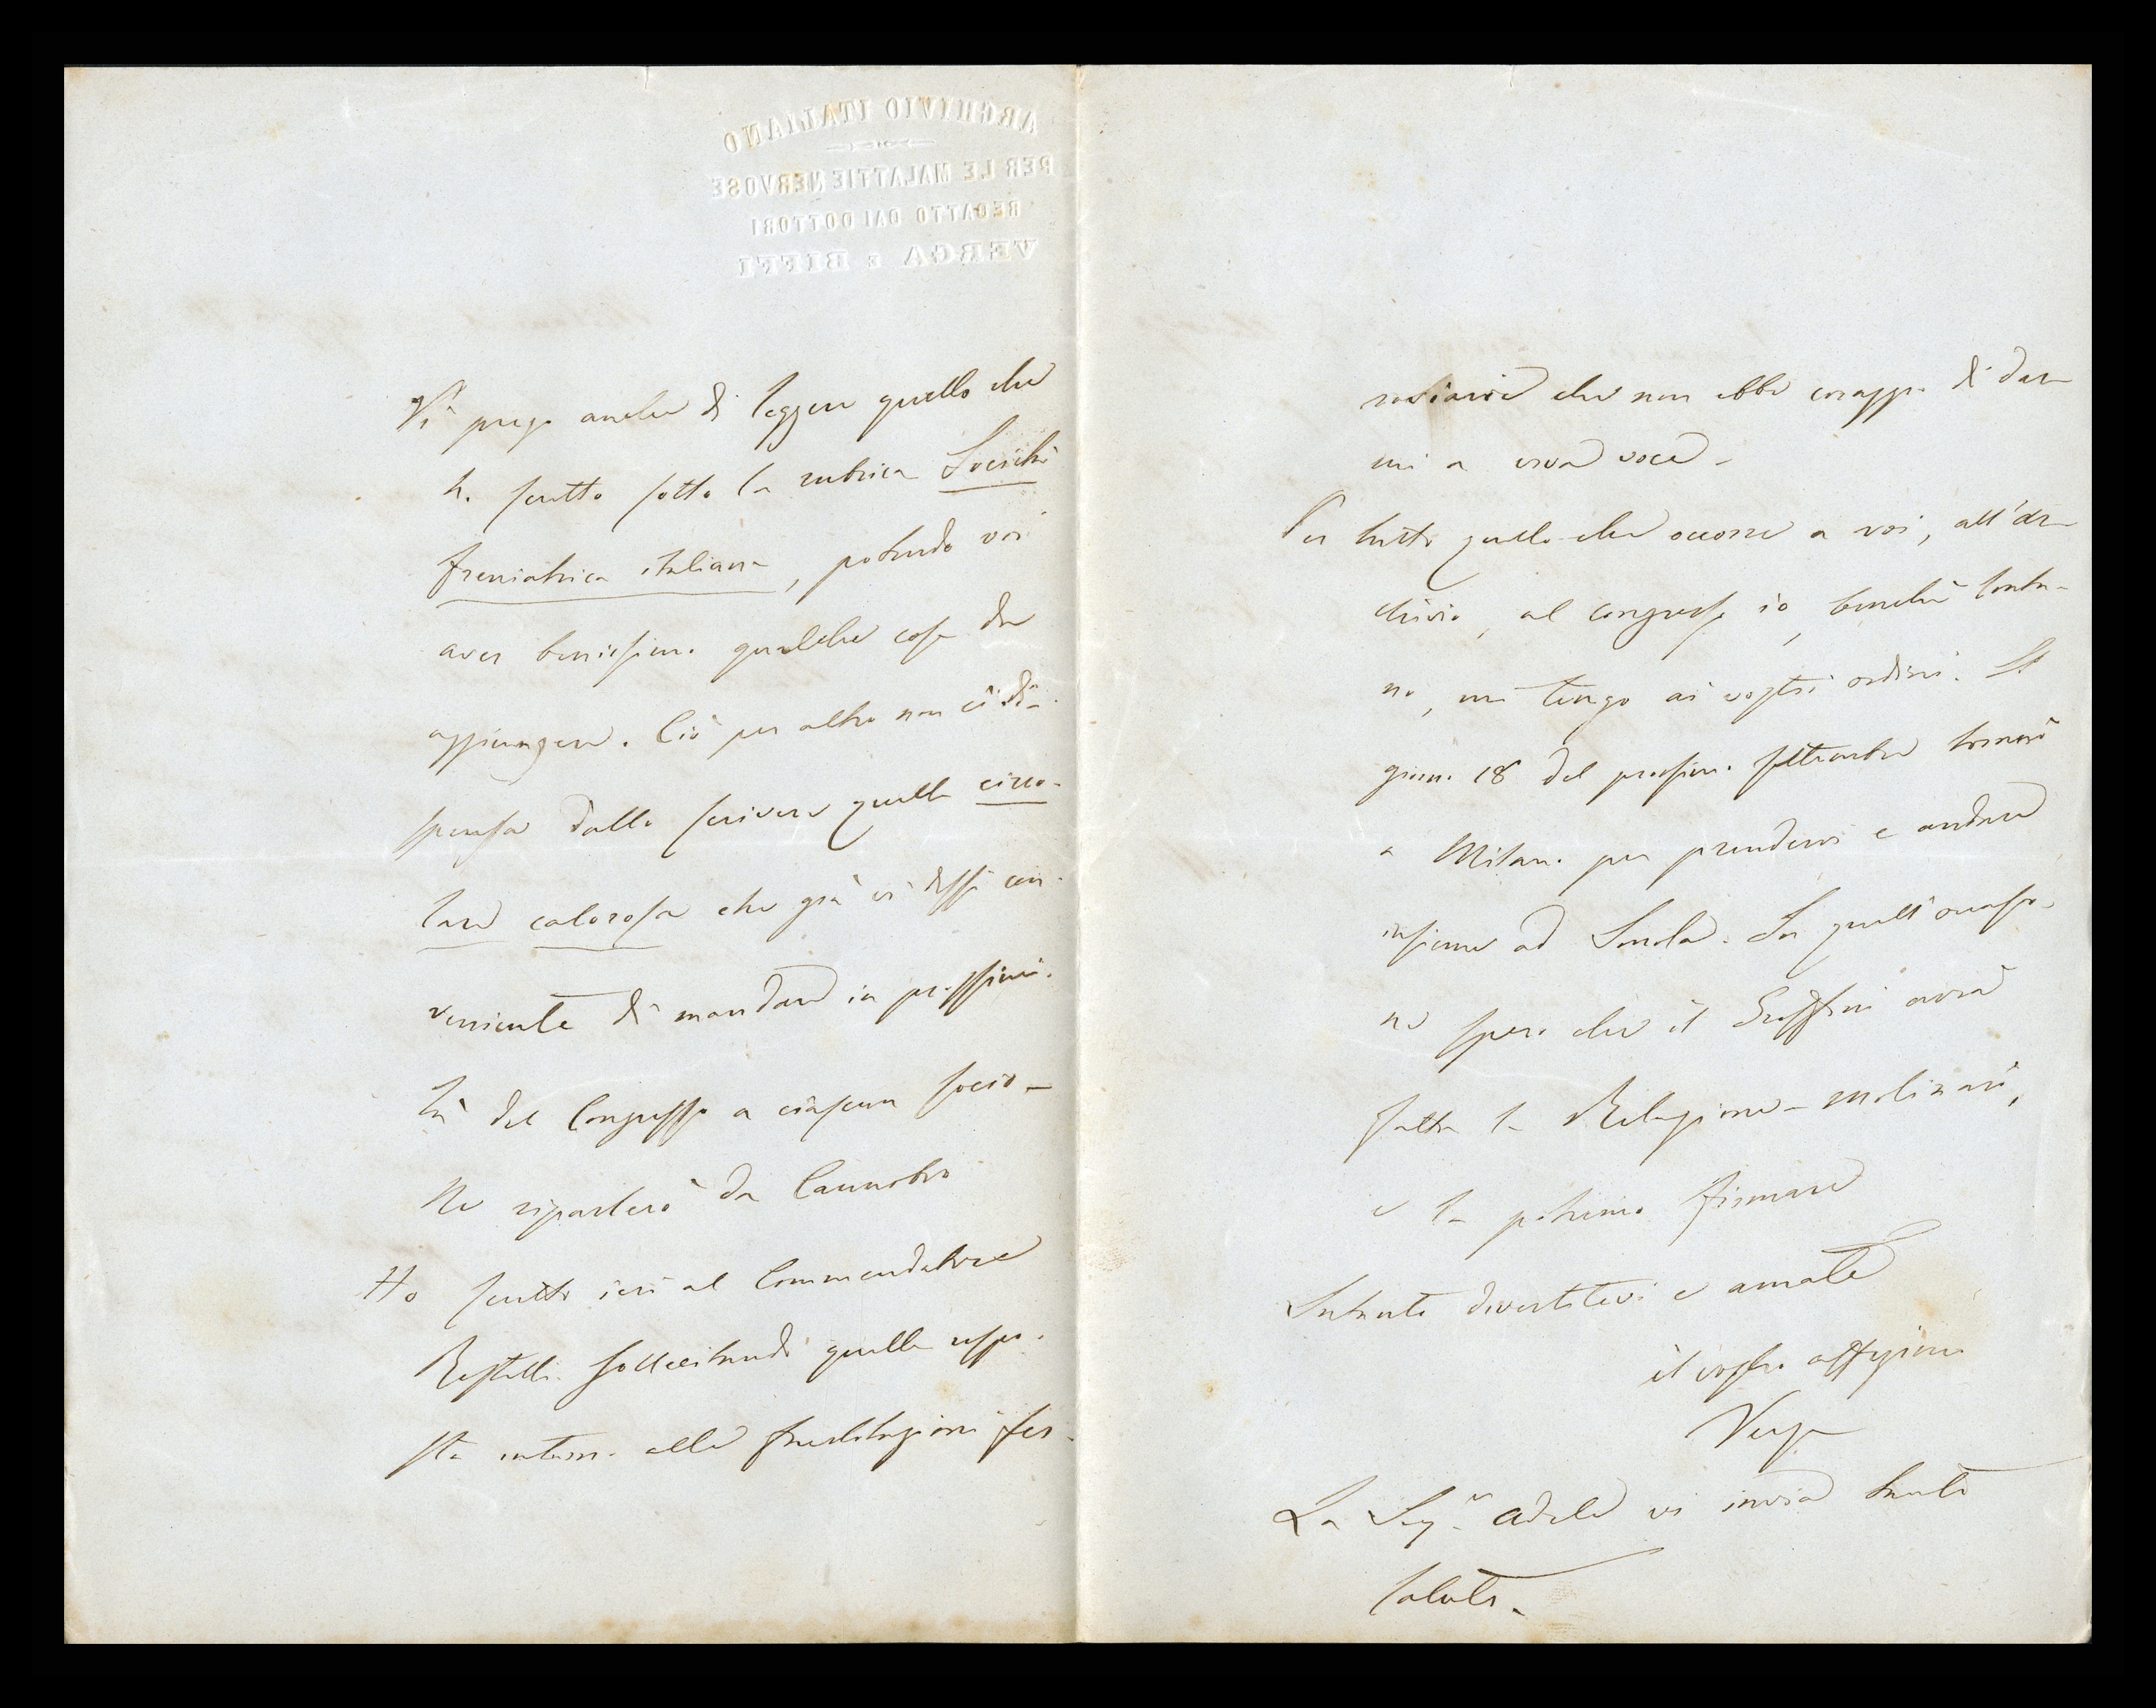 ARCHIVIO ITALIANO
PER LE MALATTIE NERVOSE
REDATTO DAI DOTTORI
VERGA E BIFFI
Vi prego anche di leggere quello che
ho scritto sotto la rubrica Società
freniatrica italiana, potendo voi
aver benissimo qualche cosa da
aggiungere. Ciò per altro non ci di-
spensa dallo scrivere quella circo-
lare calorosa che già vi dissi con-
veniente di mandare in prossimi-
tà del Congresso a ciascun socio –
Ne riparlerò da Cannobio
Ho scritto ieri al Commendatore
Restelli sollecitando quella rispo-
sta intorno alle fer-
roviarie che non ebbe coraggio di dar-
mi a viva voce –
Per tutto quello che occorre a voi, all'ar-
chivio, al congresso io, benchè lonta-
no, mi tengo ai vostri ordini. Il
giorno 18 del prossimo settembre tornerò
a Milano per prendervi e andare
insieme ad Imola. In quell'occasio-
ne spero che il avrà
fatta la Relazione Molinari,
e la potremo firmare
Intanto divertitevi e amate
il vostro affezionatissimo
Verga
La Sigra Adele vi invia tanti
saluti –